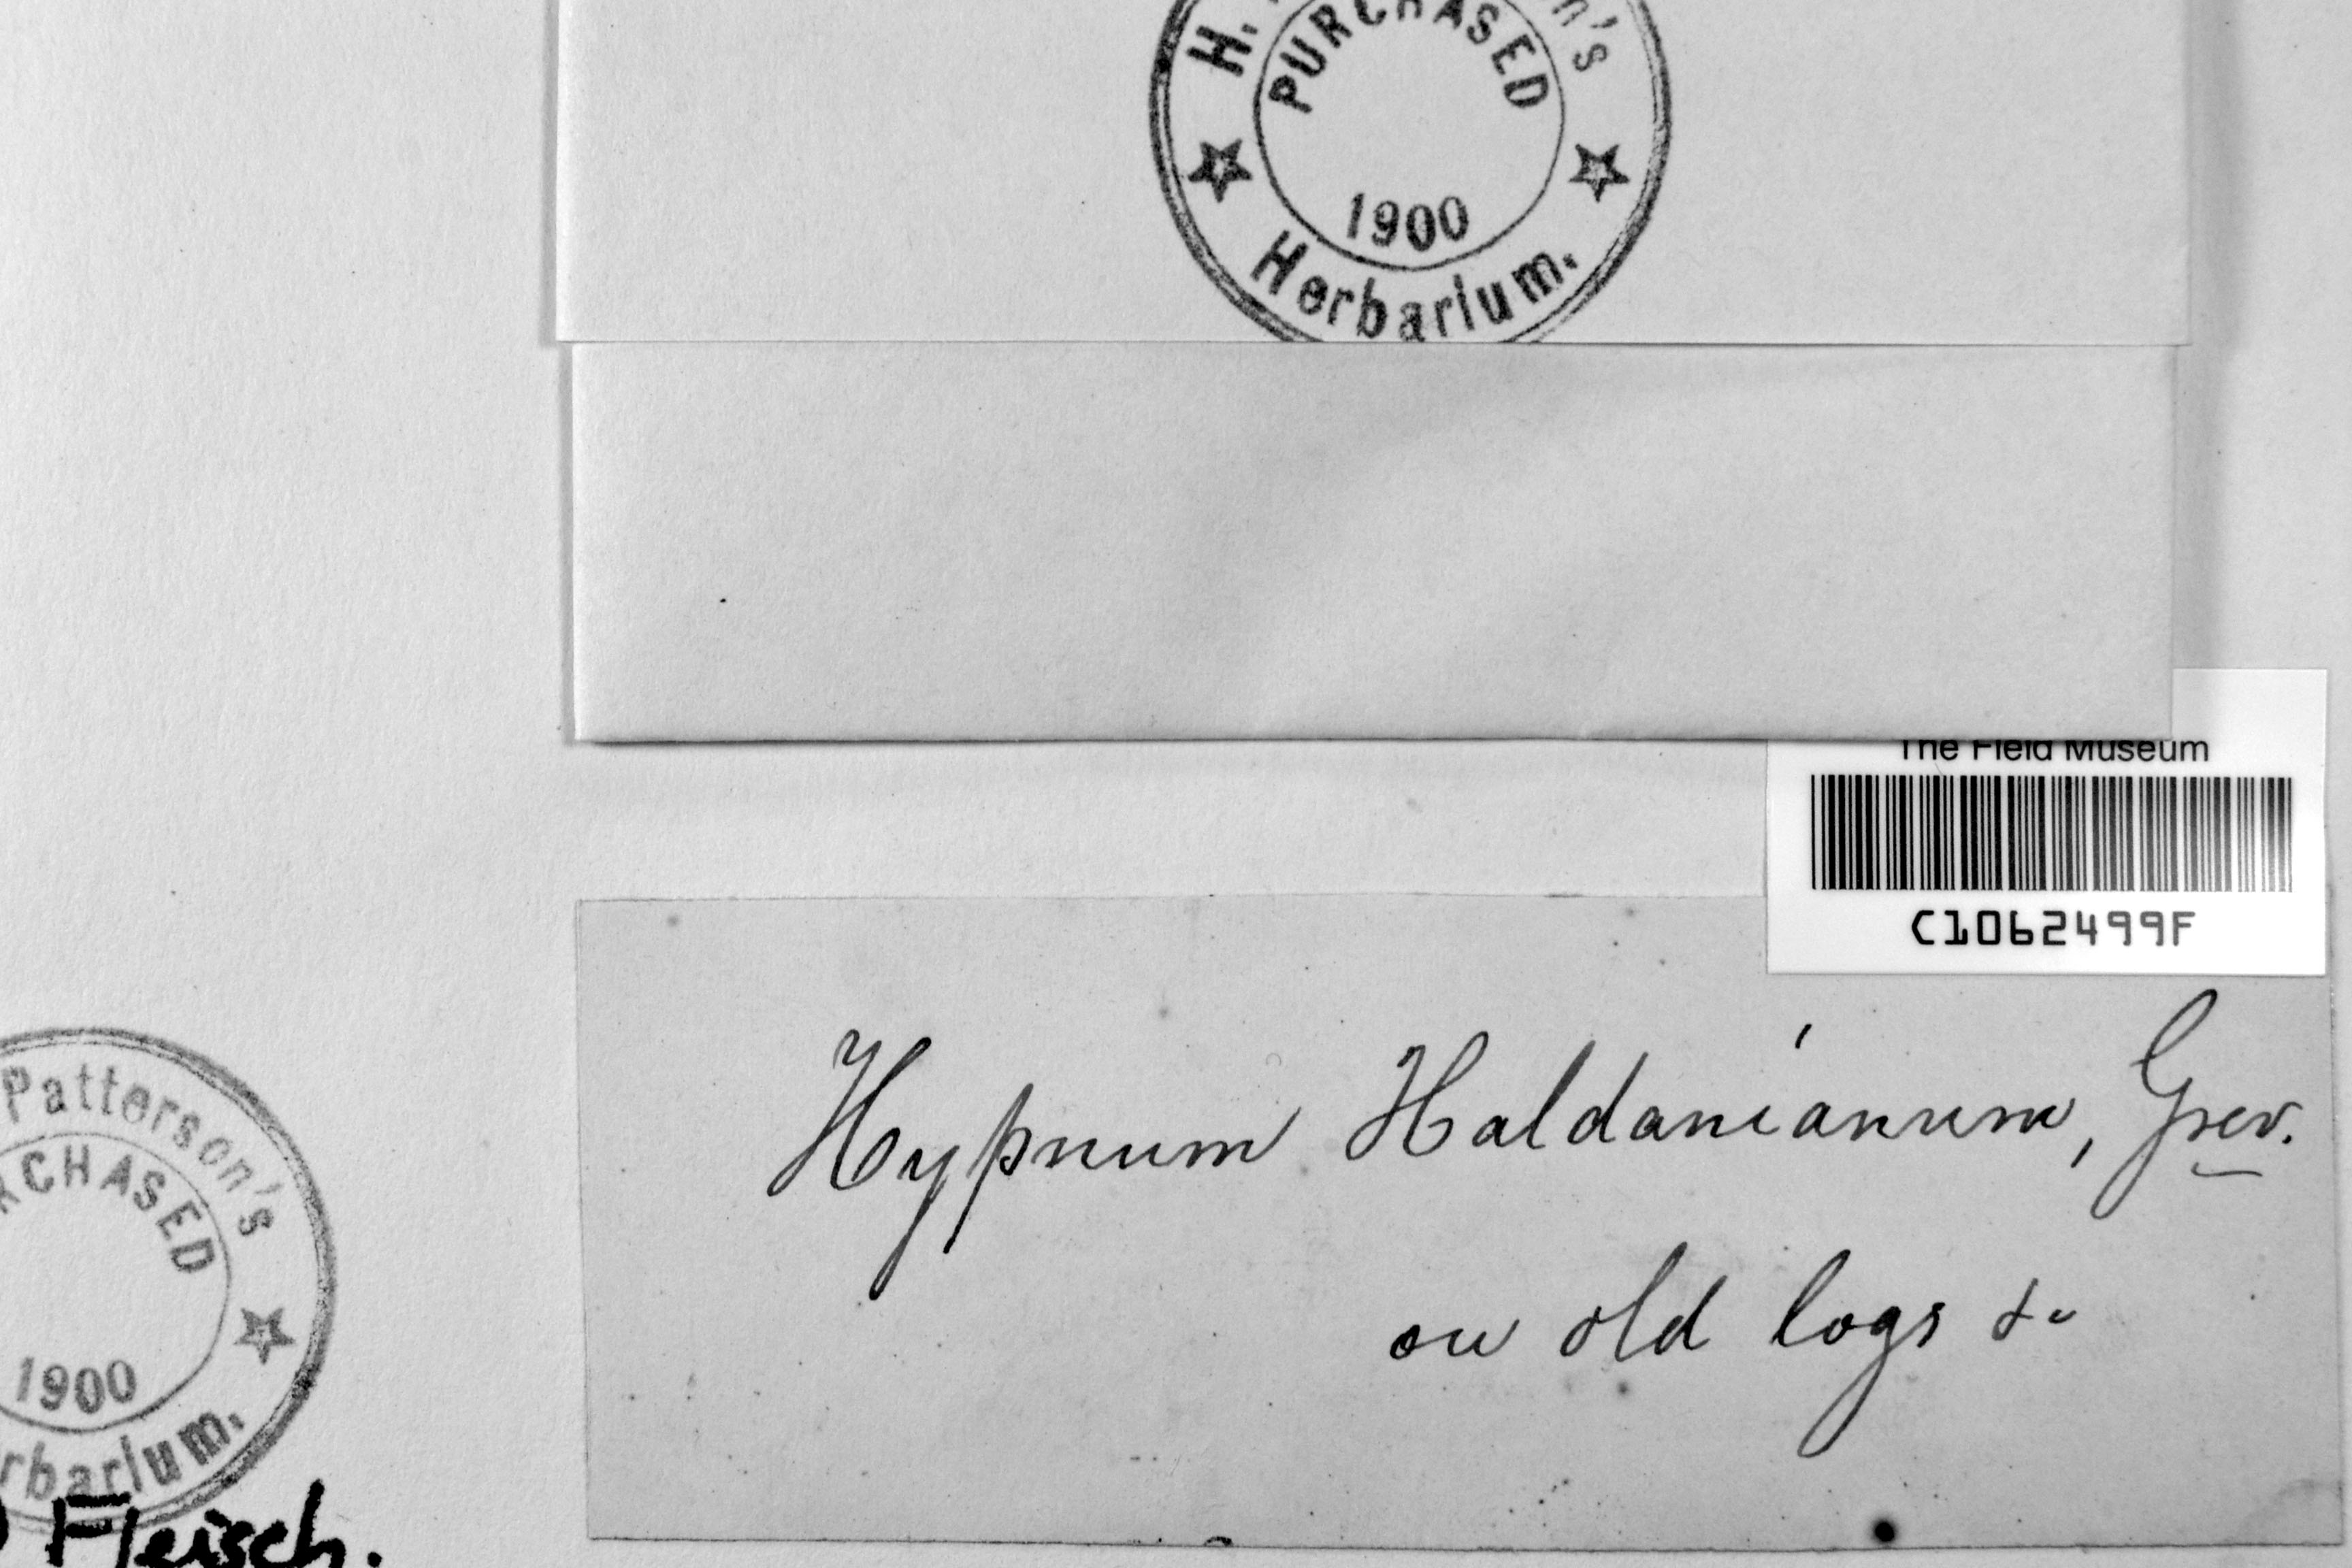 H. n's
PURCHASED
1900
Herbarium.
The Field Museum
C1062499F
Hypnum Haldanianum, Grev.
on old logs &c
Patterson's
RCHASED
1900
rbarium.
) Fleisch.